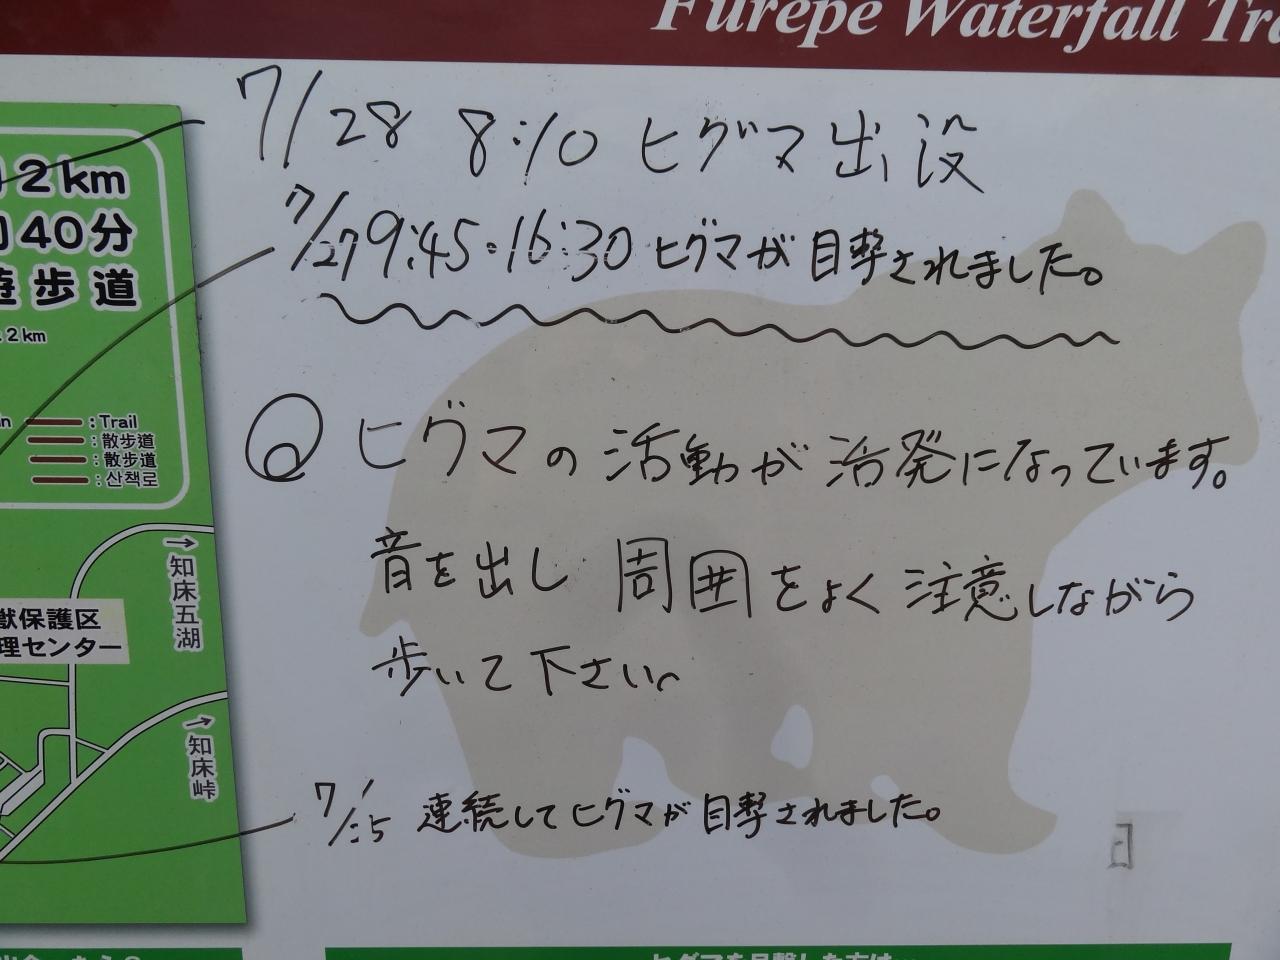 Furepe Waterfall
7/28 8:10 ヒグマ出没
7/27 9:45・16:30 ヒグマが目撃されました。
◎ ヒグマの活動が活発になっています。
音を出し 周囲をよく注意しながら
歩いて下さい。
連続してヒグマが目撃されました。
2km
40分
遊歩道
2km
: Trail
: 散歩道
: 散歩道
: 산책로
→知床五湖
獣保護区
理センター
→知床峠